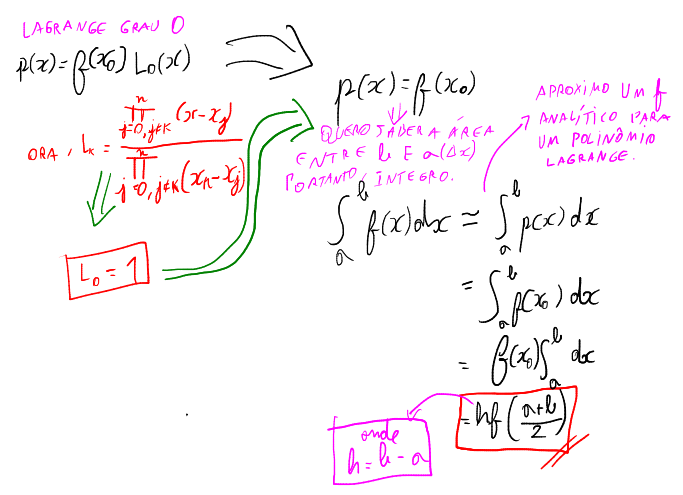 LAGRANGE GRAU 0
p(x) = f(x₀) L₀(x)
ORA, Lₖ = ∏ⁿ j=0, j≠k (x - xⱼ) / ∏ⁿ j=0, j≠k (xₖ - xⱼ)
L₀ = 1
p(x) = f(x₀)
QUERO SABER A ÁREA
ENTRE b E a (Δx)
PORTANTO, INTEGRO.
APROXIMO UM f
ANALÍTICO PARA
UM POLINÔMIO
LAGRANGE.
∫ₐᵇ f(x) dx ≃ ∫ₐᵇ p(x) dx
= ∫ₐᵇ f(x₀) dx
= f(x₀) ∫ₐᵇ dx
= hf((a+b)/2)
onde
h = b - a